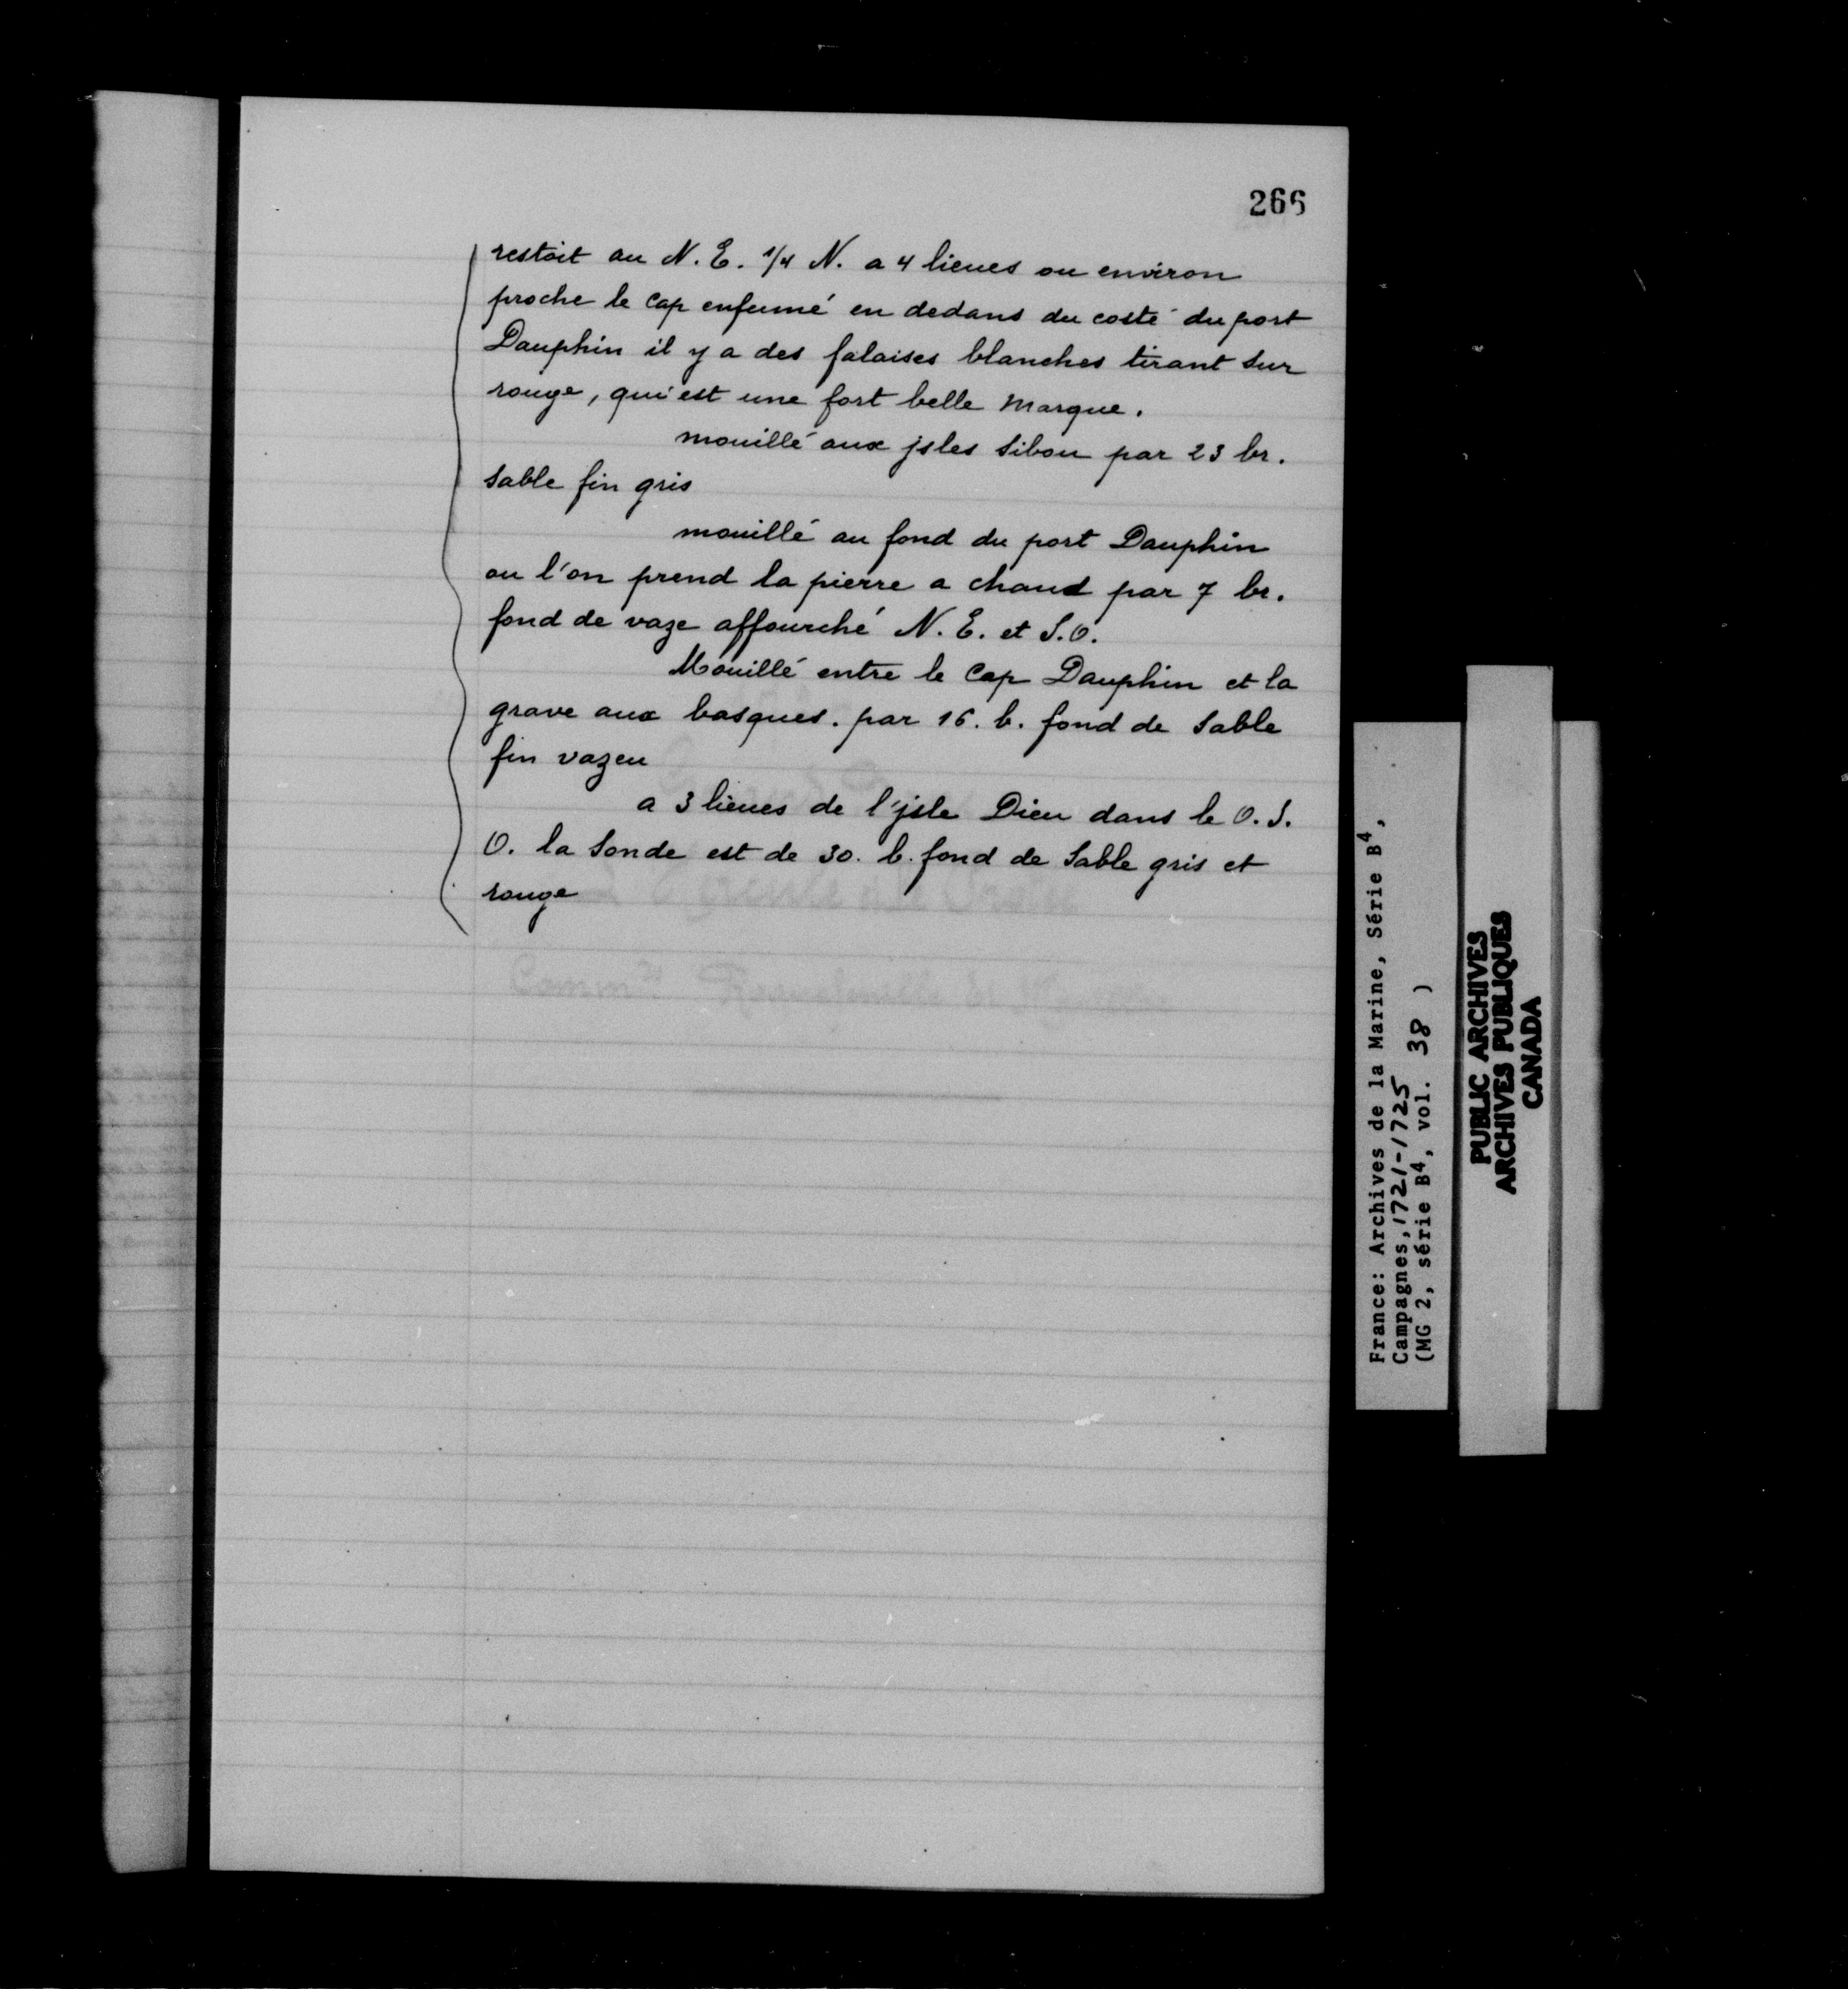 266
restoit au N. E. 1/4 N. a 4 lieues ou environ
proche le Cap enfumé en dedans du costé du port
Dauphin il y a des falaises blanches tirant sur
rouge, qui est une fort belle marque.
mouillé aux jsles Sibou par 23 br.
sable fin gris
mouillé au fond du port Dauphin
ou l'on prend la pierre a chaud par 7 br.
fond de vaze affourché N. E. et S. O.
Mouillé entre le Cap Dauphin et la
grave aux basques. par 16. b. fond de sable
fin vazeu
a 3 lieues de l'jsle Dieu dans le O. S.
O. la sonde est de 30. b. fond de sable gris et
rouge
France: Archives de la Marine, Série B4,
Campagnes, 1721-1725
(MG 2, série B4, vol. 38 )
PUBLIC ARCHIVES
ARCHIVES PUBLIQUES
CANADA